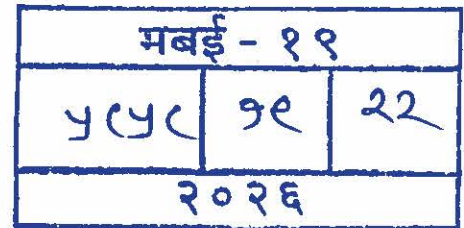 मबई - १९
५८५८ १९ २२
२०२६